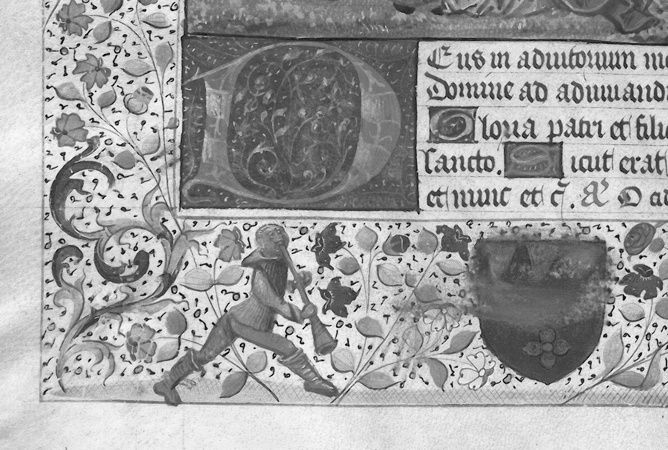 Deus in adiutorium
Domine ad adiuuand
Gloria patri et fili
sancto. Sicut erat
et nunc et c̄. Ā